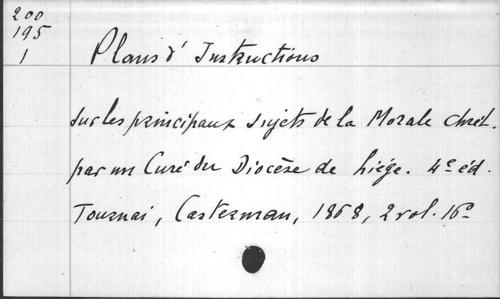 200
195
1
Plans d'Instructions
sur les principaux sujets de la Morale chrét.
par un Curé du Diocèse de Liége. 4e éd.
Tournai, Casterman, 1868, 2 vol. 16o